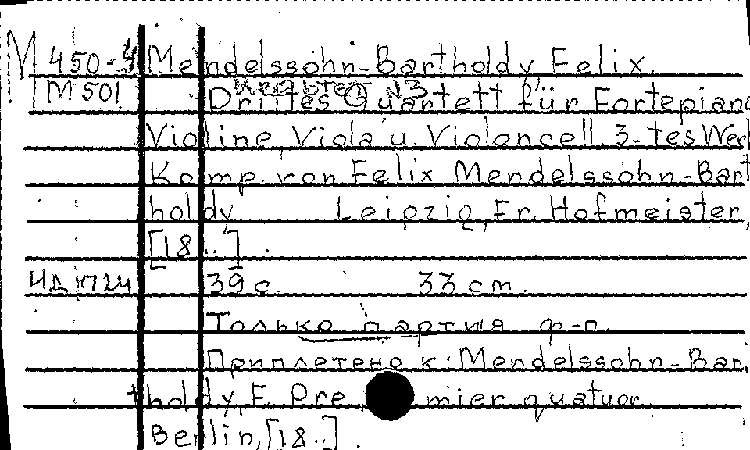 М 450-4 Mendelssohn-Bartholdy Felix.
М 501 Квартет №3
Drittes Quartett für Fortepiano
Violine, Viola u. Violoncell 3-tes Wer
Komp. von Felix Mendelssohn-Bart
holdy. Leipzig, Fr. Hofmeister,
[18..].
39 с. 33 cm.
Только партия ф-п.
Приплетено к: Mendelssohn-Bar
tholdy, F. Premier quatuor.
Berlin, [18..].